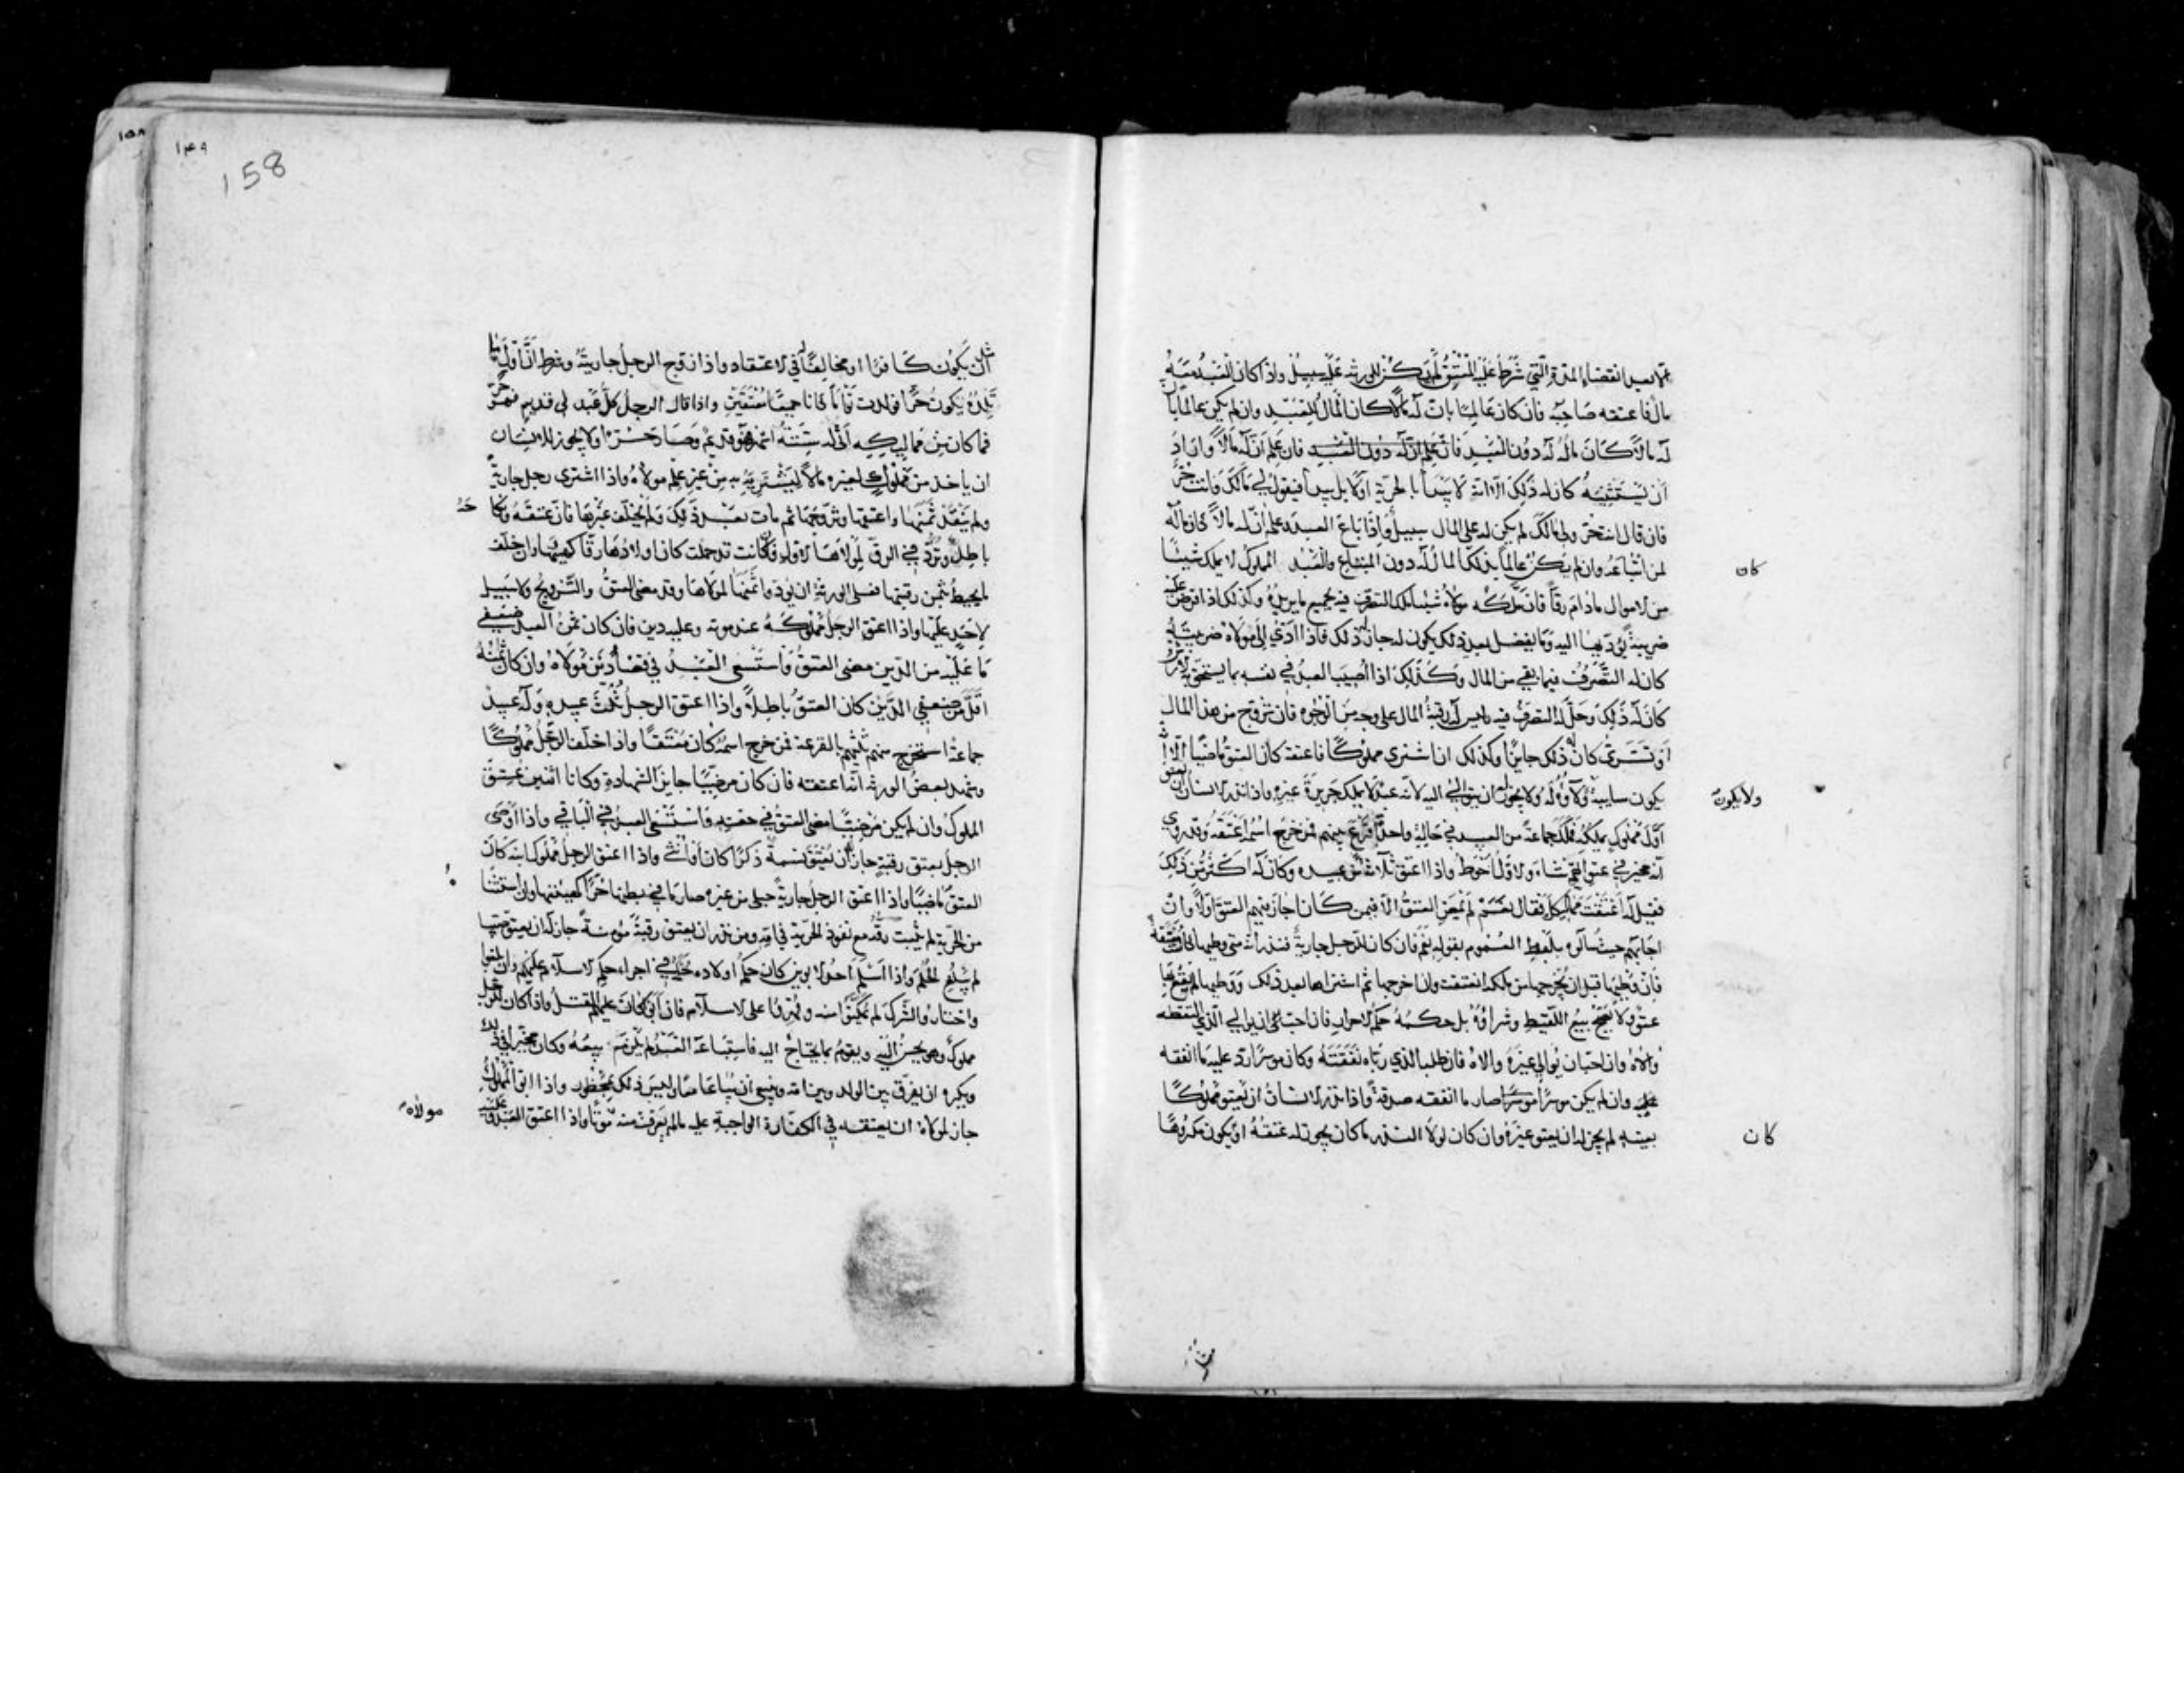 بعد انقضاء المدة التي شرط عليه المعتق لم يكن للورثة عليه سبيل واذا كان العبد معه
مال فاعتقه صاحبه فان كان عالما بان له مالا كان المال للعبد وان لم يكن عالما بان
له مالا كان ماله له دون العبد فان علم ان له مالا واراد
ان يستثنيه كان له ذلك الا انه لا يبدأ بالحرية اولا بل يبدأ فيقول لي مالك وانت حر
فان قال انت حر ولي مالك لم يكن له على المال سبيل واذا باع العبد وعلم ان له مالا كان ماله
لمن ابتاعه وان لم يكن عالما بذلك كان المال له دون المبتاع والعبد المملوك لا يملك شيئا
كان
من الاموال مادام رقا فان ملكه مولاه شيئا ملك التصرف فيه بجميع ما يريده وكذلك اذا فرض عليه
ضريبة يؤديها اليه وما يفضل بعد ذلك يكون له جاز ذلك فاذا ادى الى مولاه ضريبته
كان له التصرف فيما بقي من المال وكذلك اذا اصيب العبد في نفسه بما يستحق به الارش
كان له ذلك وحل له التصرف فيه وليس له رقبة المال على وجه من الوجوه فان تزوج من هذا المال
او تسرى كان ذلك جايزا وكذلك ان اشترى مملوكا فاعتقه كان العتق ماضيا الا انه
يكون سايبة ولاؤه له ولا يجوز له ان يتوالى اليه لانه عبد لا يملك جريرة غيره واذا نذر الانسان ان يعتق
ولا يكون
اول مملوك يملكه فملك جماعة من العبيد في حالة واحدة اقرع بينهم فمن خرج اسمه اعتقه وقد روي
انه مخير في عتق ايهم شاء والاول احوط واذا اعتق ثلاثة من عبيده وكان له اكثر من ذلك
فقيل له اعتقت مماليكك فقال نعم لم يمض العتق الا فيمن كان اجاز فيهم العتق اولا وان
اجابهم حين سالوه بلفظ العموم بقوله نعم فان كان للرجل جارية فنذر انه متى وطيها كانت معتقة
فان وطيها قبل ان يخرجها من ملكه انعتقت وان اخرجها ثم اشتراها بعد ذلك ووطيها لم يقع بها
عتق ولا يصح بيع اللقيط وشراؤه بل حكمه حكم الاحرار فان احب ان يوالي الذي التقطه
والاه وان احب ان يوالي غيره والاه فان طلب الذي رباه نفقته وكان موسرا رد عليه ما انفقه
وان لم يكن موسرا صار ما انفقه صدقة واذا نذر الانسان ان يعتق مملوكا
بعينه لم يجز له ان يعتق غيره وان كان لولا النذر ما كان يجوز له عتقه او يكون مكروها
كان
١٥٨
١٤٩
158
مثل ان يكون كافرا او مخالفا في الاعتقاد واذا زوج الرجل جاريته وشرط ان اول ما
تلده يكون حرا فولدت توأما كانا جميعا معتقين واذا قال الرجل كل عبد لي قديم فهو حر
فما كان من مماليكه اتى له ستة اشهر فهو قديم وصار حرا ولا يجوز للانسان
ان ياخذ من مملوك لغيره مالا ليشتريه به من غير علم مولاه واذا اشترى رجل جارية
ولم ينقد ثمنها واعتقها وتزوجها ثم مات بعد ذلك ولم يخلف غيرها فان عتقه ونكاحه
باطل وترد في الرق لمولاها الاول وان كانت قد حملت كان اولادها رقا كهيئتها وان خلف
ما يحيط بثمن رقبتها فعلى الورثة ان يؤدوا ثمنها لمولاها وقد مضى العتق والتزويج ولا سبيل
لاحد عليها واذا اعتق الرجل مملوكه عند موته وعليه دين فان كان ثمن العبد ضعفي
ما عليه من الدين مضى العتق واستسعي العبد في قضاء دين مولاه وان كان ثمنه
اقل من ضعفي الدين كان العتق باطلا واذا اعتق الرجل ثلث عبيده وله عبيد
جماعة استخرج منهم ثلثهم بالقرعة فمن خرج اسمه كان معتقا واذا خلف الرجل مملوكا
وشهد بعض الورثة انه اعتقه فان كان مرضيا جايز الشهادة وكانا اثنين عتق
المملوك وان لم يكن مرضيا مضى العتق في حصته واستسعي العبد في الباقي واذا اوصى
الرجل بعتق رقبة جاز ان يعتق نسمة ذكرا كان او انثى واذا اعتق الرجل مملوك ابنه كان
العتق ماضيا واذا اعتق الرجل جارية حبلى من غيره صار ما في بطنها حرا كهيئتها وان استثناه
من الحرية لم يثبت رقه مع نفوذ الحرية في امه ومن نذر ان يعتق رقبة مؤمنة جاز له ان يعتق صبيا
لم يبلغ الحلم واذا اسلم احد الابوين كان حكم اولاده حكمه في اجراء حكم الاسلام عليهم وان بلغوا
واختاروا الشرك لم يمكنوا منه وقهروا على الاسلام فان ابوا كان عليهم القتل واذا كان للرجل
مملوك وهو يحسن اليه ويقوم بما يحتاج اليه فاستباعه العبد لم يلزمه بيعه وكان مخيرا في ذلك
ويكره ان يفرق بين الولد وبين امه وينبغي ان يباعا معا وليس ذلك بمحظور واذا ابق المملوك
جاز لمولاه ان يعتقه في الكفارة الواجبة عليه ما لم يعرف منه موتا واذا اعتق العبد
مولاه